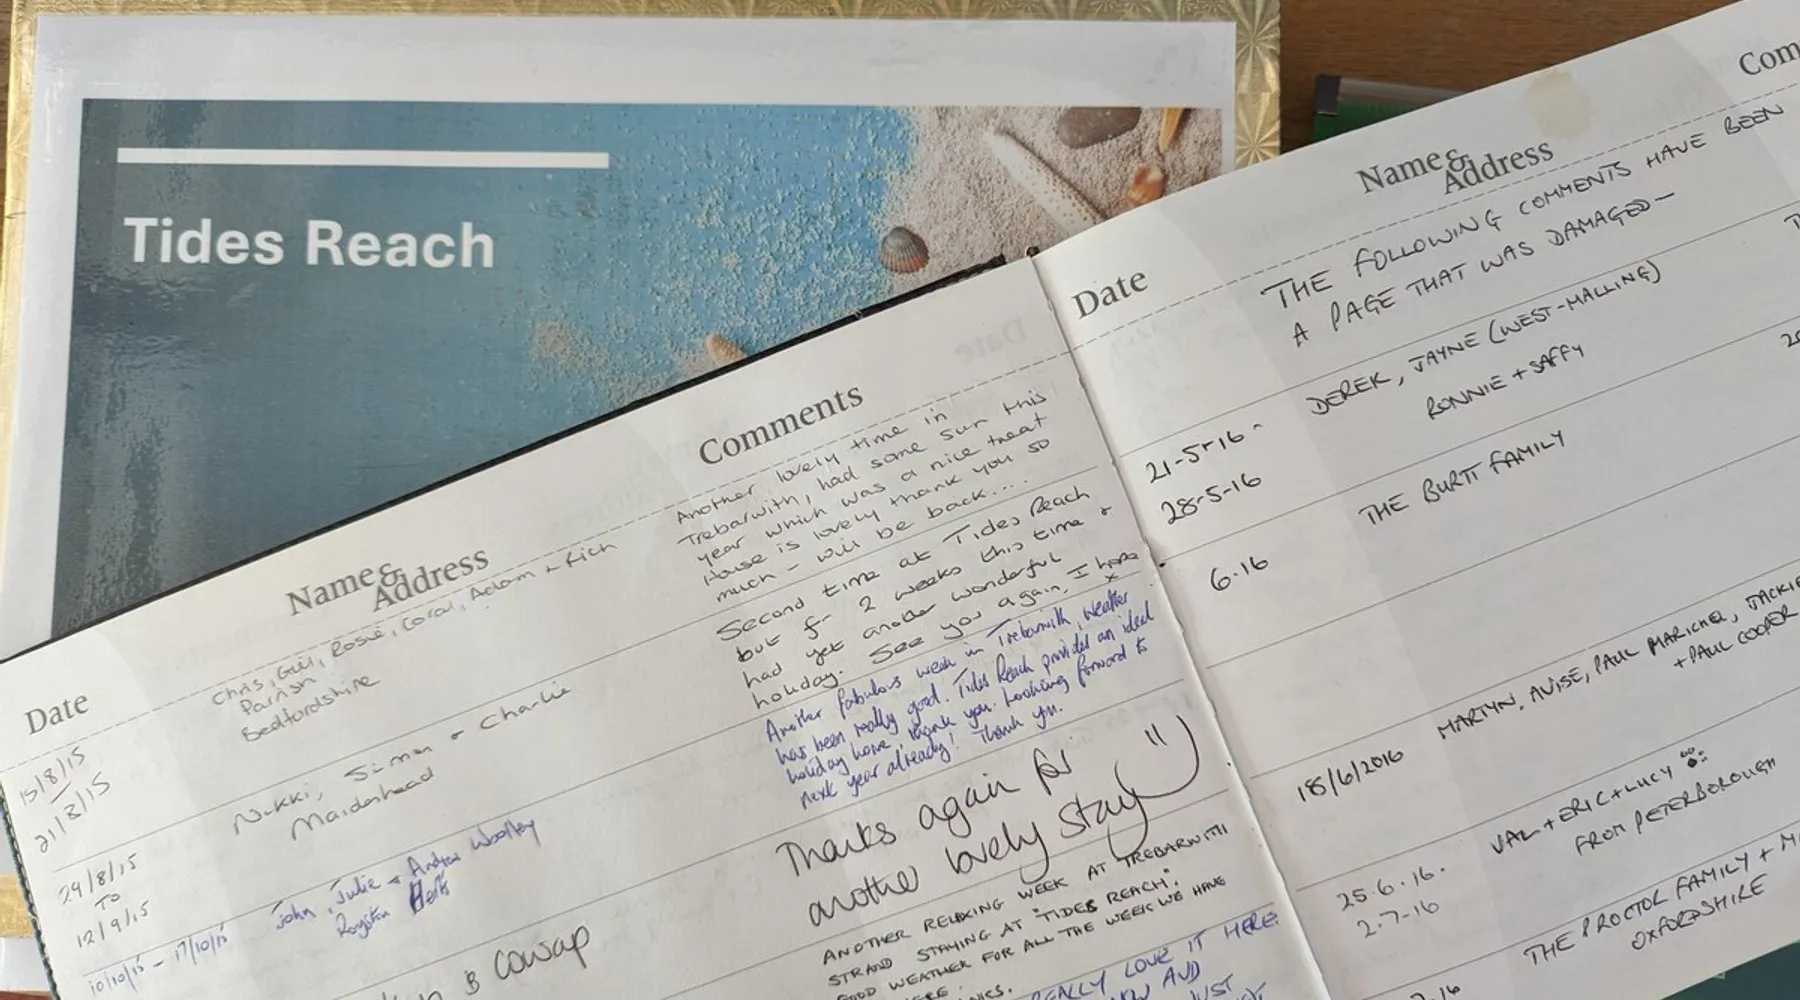 Tides Reach
Name & Address
Comments
Date
15/8/15
21/8/15
Chris, Gill, Rosie, Coral, Adam + Rich
Parrish
Bedfordshire
Another lovely time in
Trebarwith, had some sun this
year which was a nice treat
House is lovely thank you so
much - will be back....
29/8/15
TO
12/9/15
Nikki, Simon + Charlie
Maidenhead
Second time at Tides Reach
but for 2 weeks this time +
had yet another wonderful
holiday. See you again, I hope
x
10/10/15 - 17/10/15
John, Julie + Andrew
Royston Herts
Another fabulous week in Trebarwith, weather
has been really good. Tides Reach provides an ideal
holiday home, thank you. Looking forward to
next year already! Thank you.
Cowap
Thanks again for
another lovely stay
ANOTHER RELAXING WEEK AT TREBARWITH
STRAND STAYING AT "TIDES REACH".
GOOD WEATHER FOR ALL THE WEEK WE HAVE
REALLY LOVE IT HERE.
AND
JUST
Date
Name & Address
Com
THE FOLLOWING COMMENTS HAVE BEEN
A PAGE THAT WAS DAMAGED-
21-5-16 -
28-5-16
DEREK, JAYNE (WEST-MALLING)
RONNIE + SAFFY
6.16
THE BURTT FAMILY
18/6/2016
MARTYN, AVISE, PAUL MARICHEL, JACKIE
+ PAUL COOPER
25.6.16.
2.7-16
VAL + ERIC + LUCY
FROM PETERBOROUGH
THE PROCTOR FAMILY + M
OXFORDSHIRE